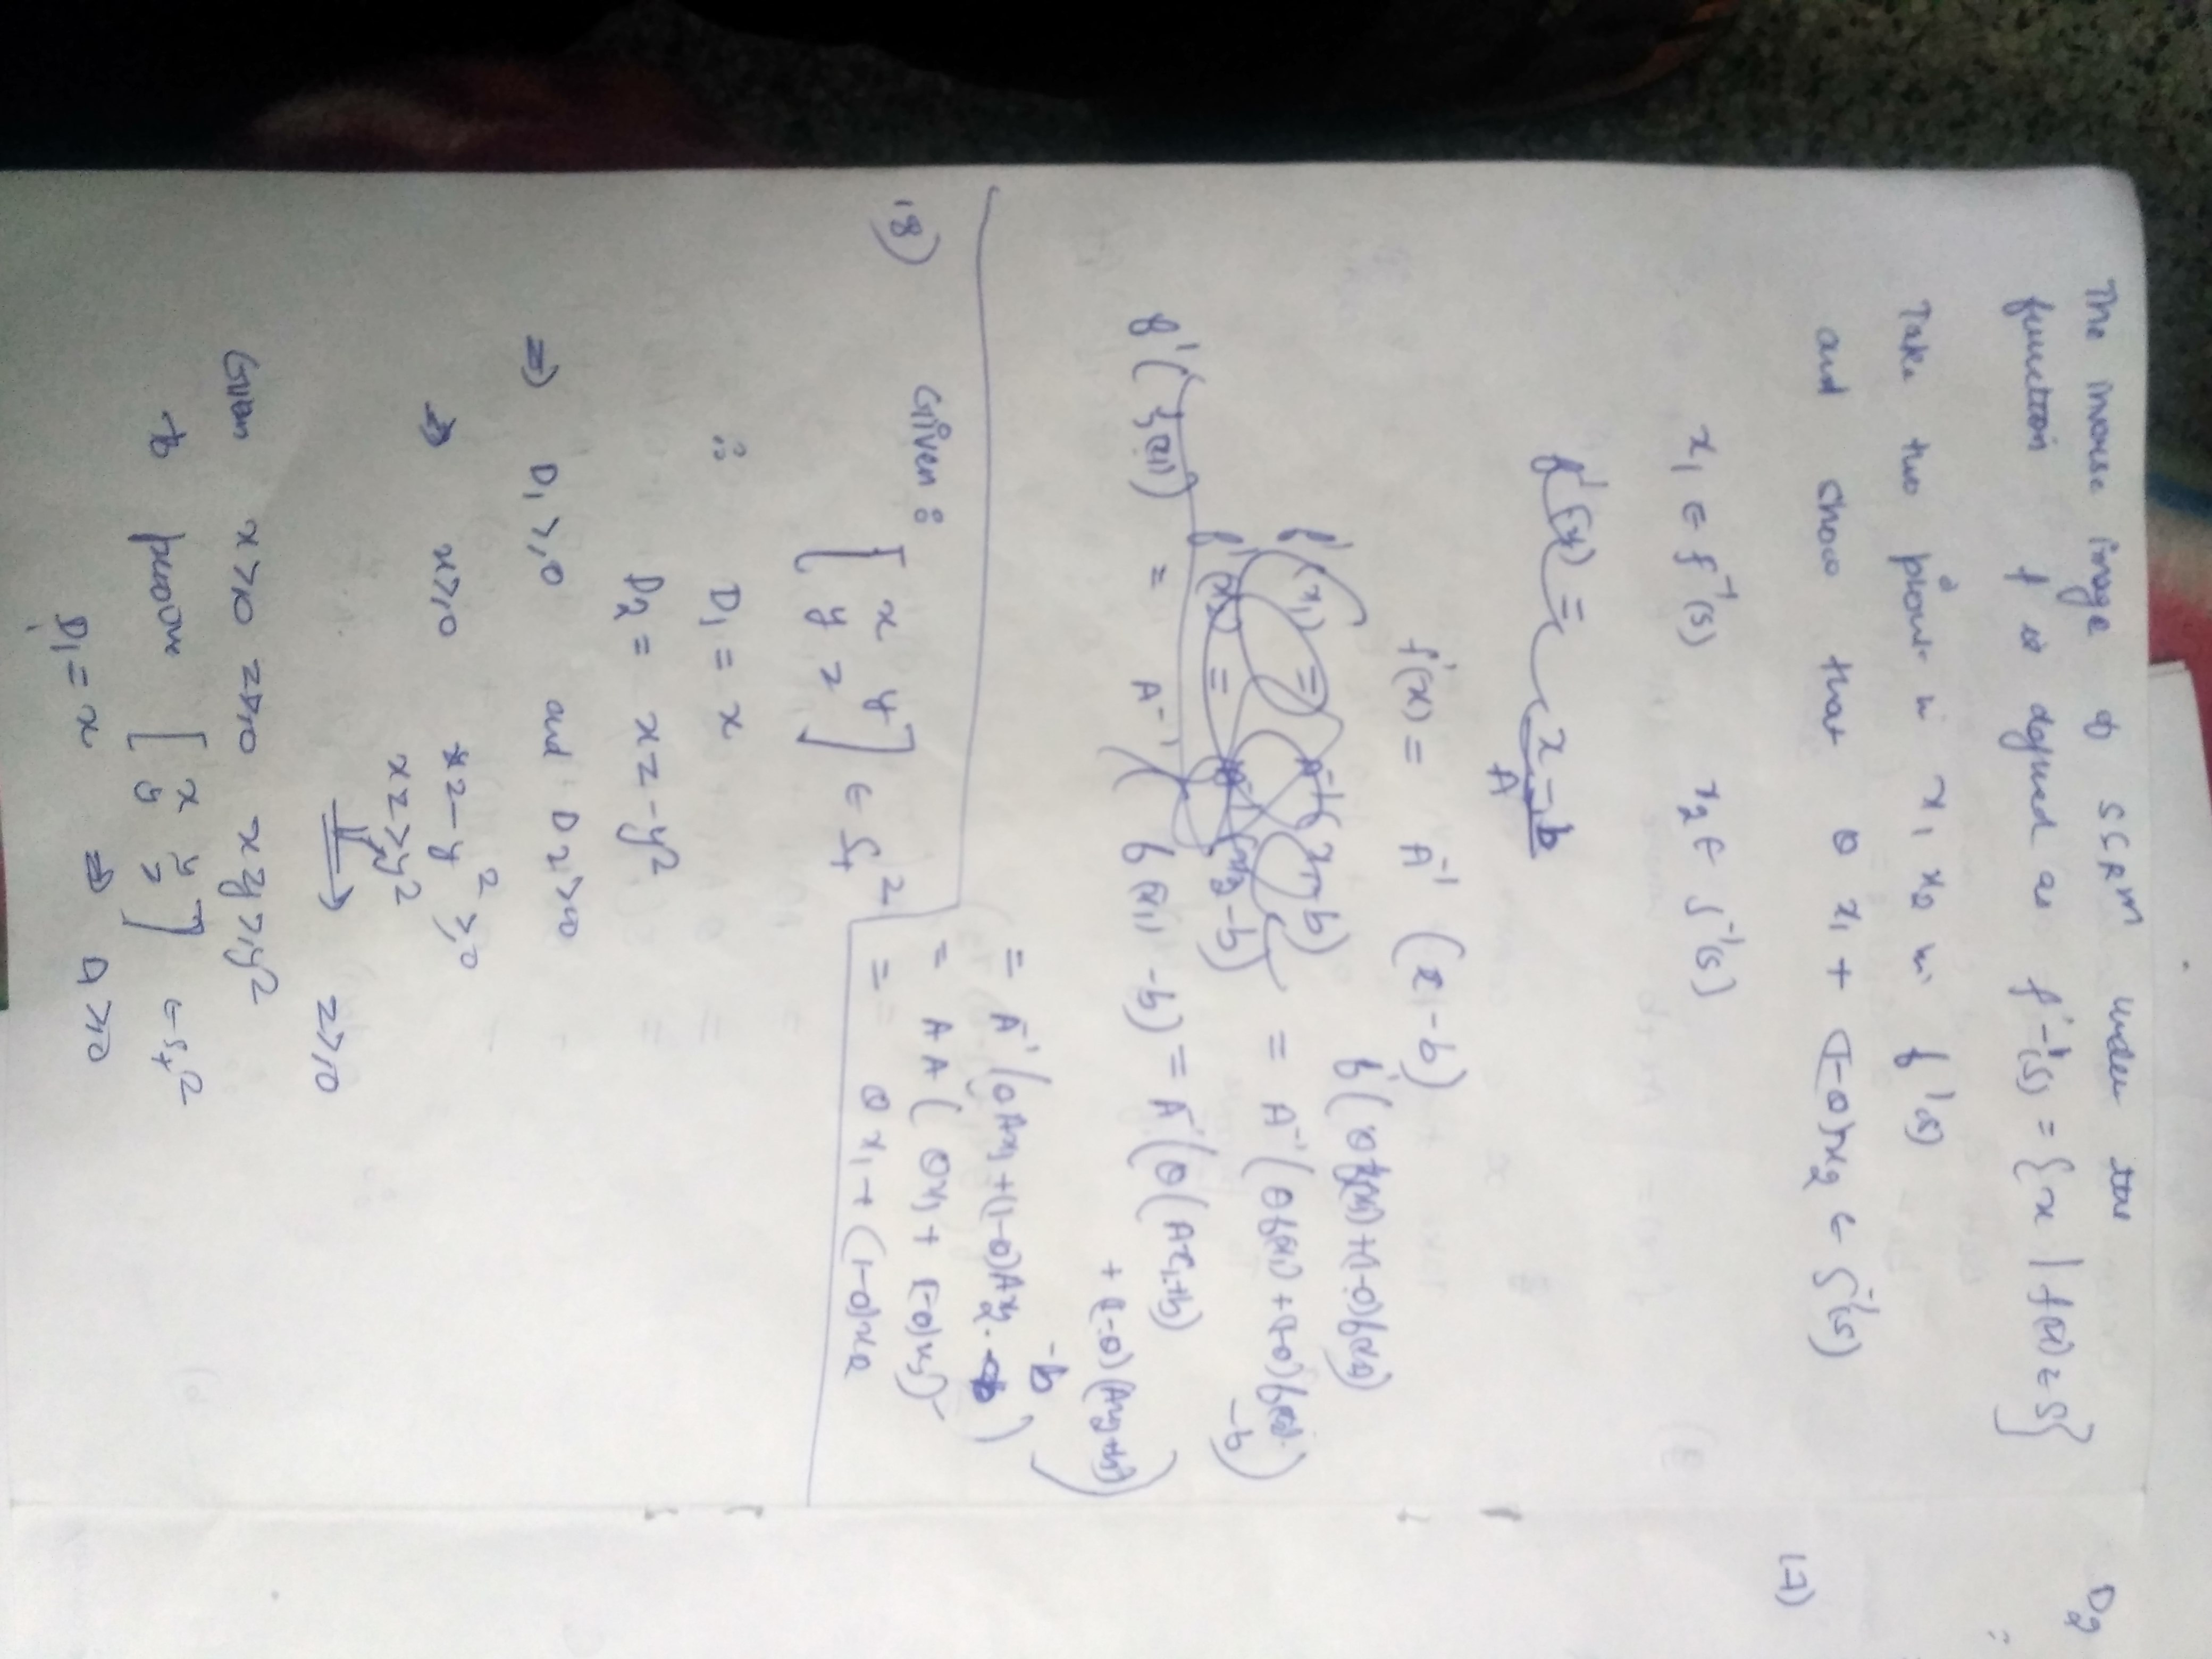 The inverse image of S ⊂ R^m under the
function f is defined as f^-1(S) = {x | f(x) ∈ S}
Take two points in x1 x2 in f^-1(S)
and show that θ x1 + (1-θ)x2 ∈ f^-1(S)
x1 ∈ f^-1(S) x2 ∈ f^-1(S)
f^-1(x) = A^-1 (x - b)
f^-1(θf(x1)+(1-θ)f(x2))
= A^-1(θf(x1)+(1-θ)f(x2) - b)
= A^-1(θ(Ax1+b) + (1-θ)(Ax2+b) - b)
= A^-1(θAx1+(1-θ)Ax2)
= A A(θx1 + (1-θ)x2)
= θx1 + (1-θ)x2
18) Given : [x y
y z] ∈ S+^2
∴ D1 = x
D2 = xz - y^2
⇒ D1 ≥ 0 and D2 ≥ 0
⇒ x ≥ 0 xz - y^2 ≥ 0
xz ≥ y^2
⇒ z ≥ 0
Given x ≥ 0 z ≥ 0 xz ≥ y^2
to prove [x y
y z] ∈ S+^2
D1 = x ⇒ D1 ≥ 0
D2
17)